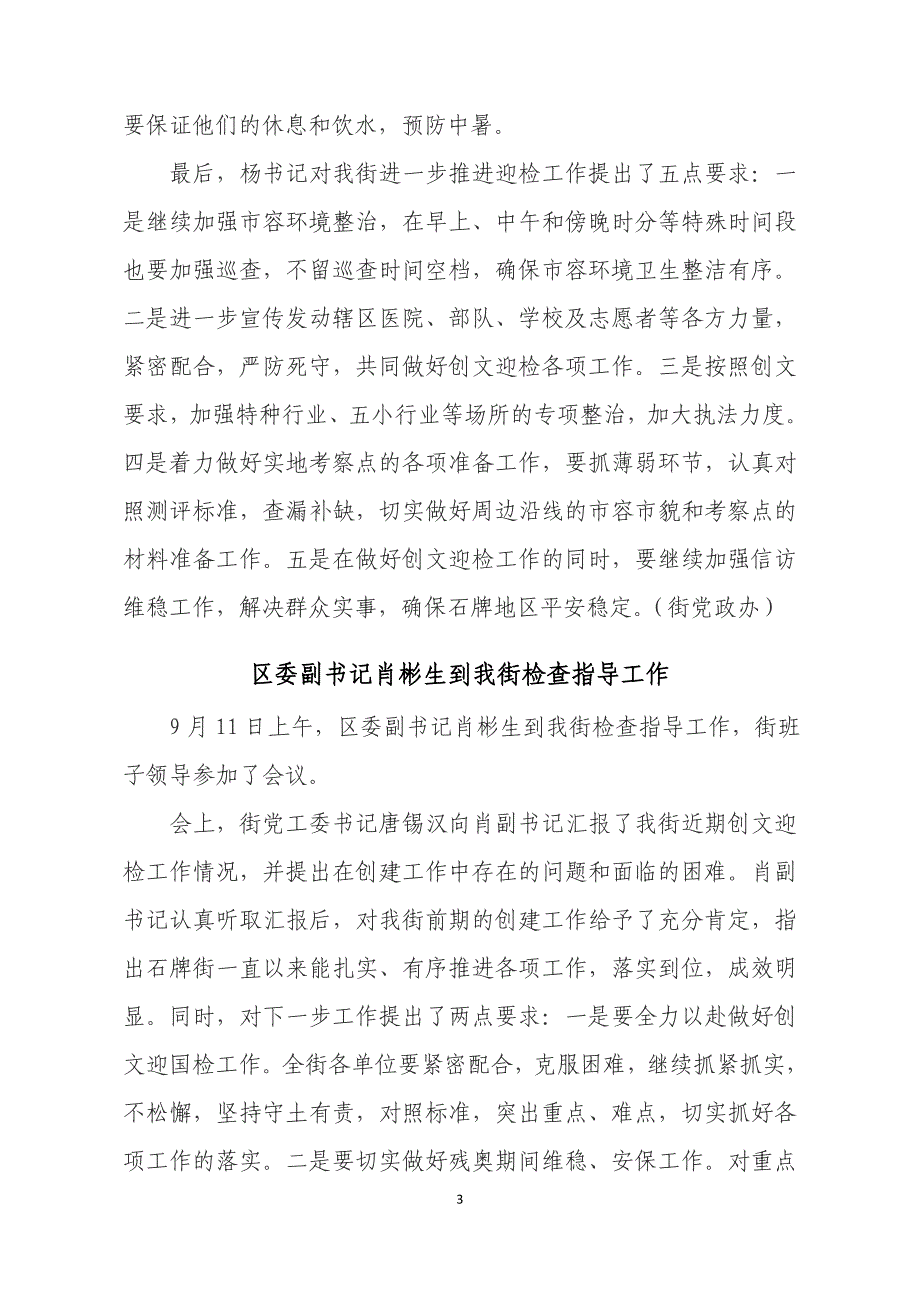 要保证他们的休息和饮水，预防中暑。
最后，杨书记对我街进一步推进迎检工作提出了五点要求：一
是继续加强市容环境整治，在早上、中午和傍晚时分等特殊时间段
也要加强巡查，不留巡查时间空档，确保市容环境卫生整洁有序。
二是进一步宣传发动辖区医院、部队、学校及志愿者等各方力量，
紧密配合，严防死守，共同做好创文迎检各项工作。三是按照创文
要求，加强特种行业、五小行业等场所的专项整治，加大执法力度。
四是着力做好实地考察点的各项准备工作，要抓薄弱环节，认真对
照测评标准，查漏补缺，切实做好周边沿线的市容市貌和考察点的
材料准备工作。五是在做好创文迎检工作的同时，要继续加强信访
维稳工作，解决群众实事，确保石牌地区平安稳定。（街党政办）
区委副书记肖彬生到我街检查指导工作
9 月 11 日上午，区委副书记肖彬生到我街检查指导工作，街班
子领导参加了会议。
会上，街党工委书记唐锡汉向肖副书记汇报了我街近期创文迎
检工作情况，并提出在创建工作中存在的问题和面临的困难。肖副
书记认真听取汇报后，对我街前期的创建工作给予了充分肯定，指
出石牌街一直以来能扎实、有序推进各项工作，落实到位，成效明
显。同时，对下一步工作提出了两点要求：一是要全力以赴做好创
文迎国检工作。全街各单位要紧密配合，克服困难，继续抓紧抓实，
不松懈，坚持守土有责，对照标准，突出重点、难点，切实抓好各
项工作的落实。二是要切实做好残奥期间维稳、安保工作。对重点
3